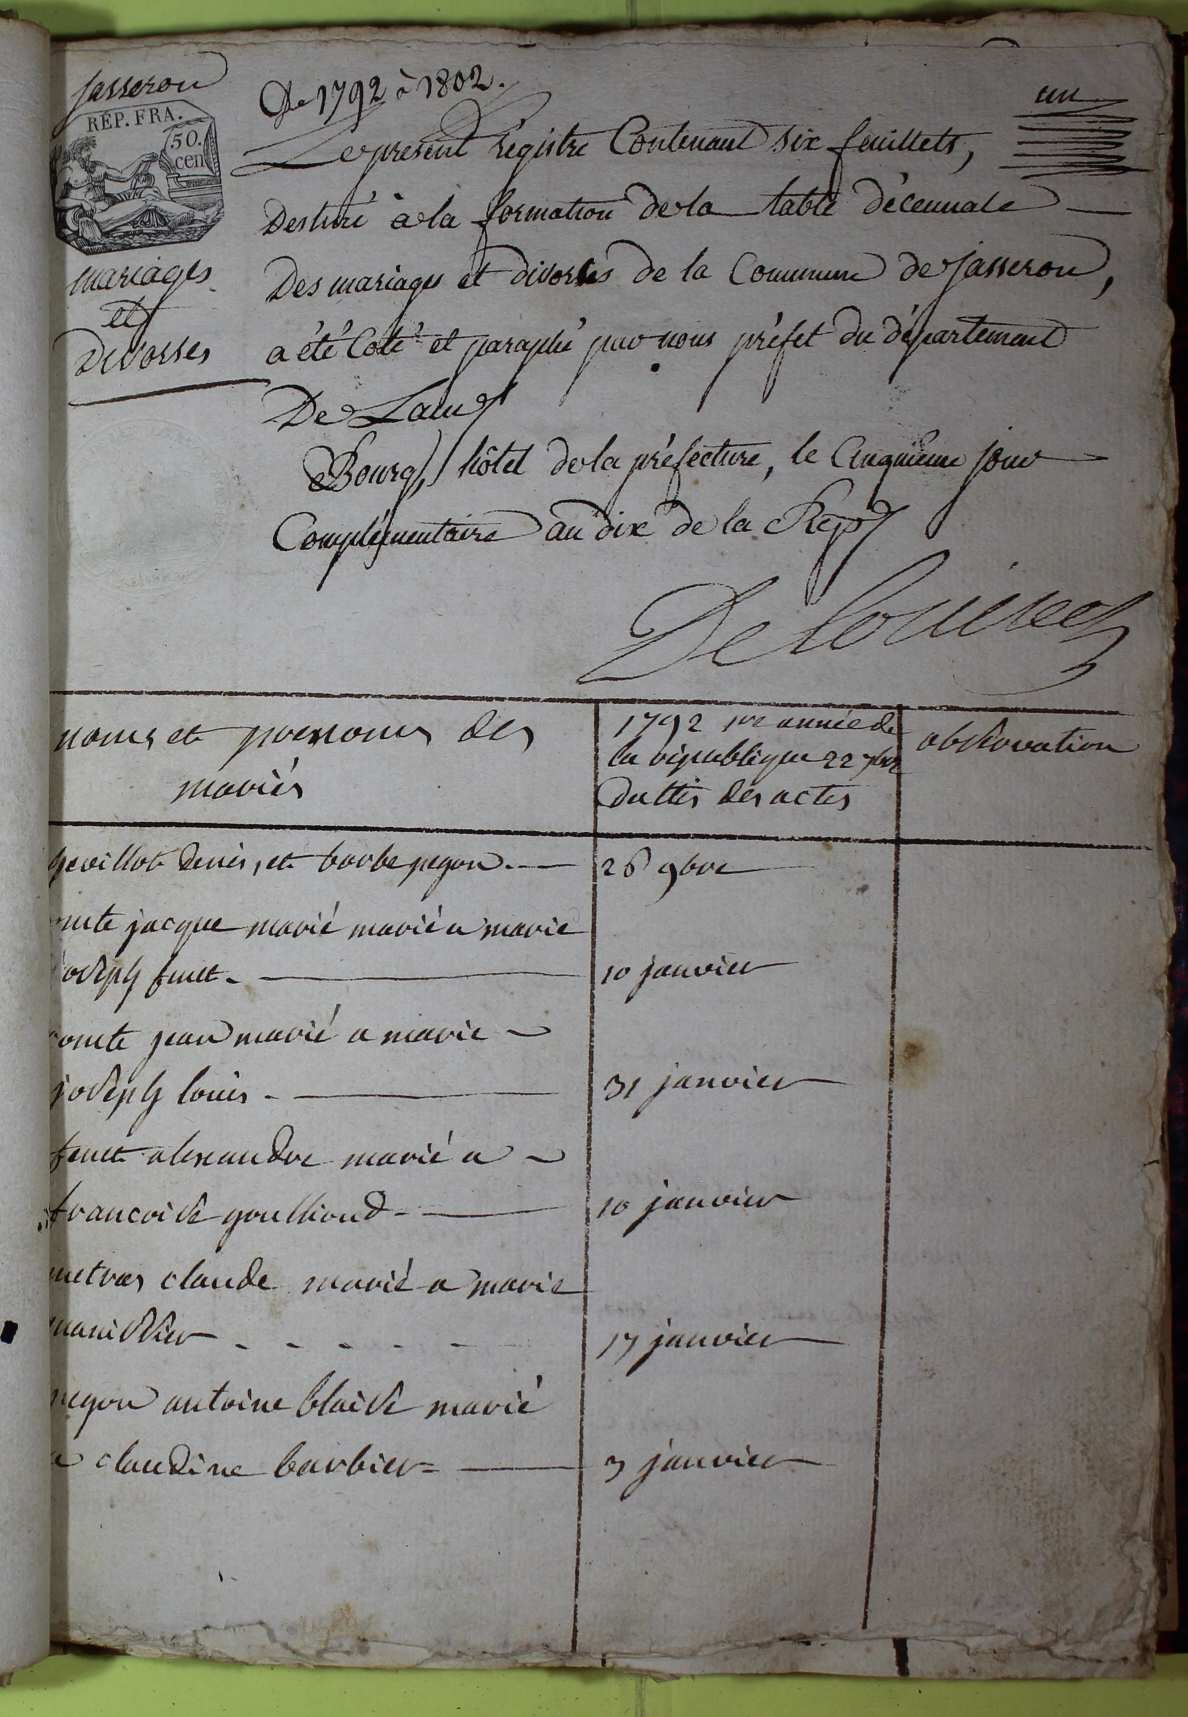 Jasseron
REP. FRA.
50.
cen
mariages
et
Divorses
De 1792 à 1802.
un
Le présent régistre Contenant six feuillets,
Destiné à la formation de la table décennale
Des mariages et divorses de la Commune de Jasseron,
a été Coté et paraphé par nous préfet du département
De Lain
Bourg, hôtel de la préfecture, le Cinquieme jour
Complémentaire an dix de la Rep
noms et prenoms des
mariés
1792 1re année de
la république 22 7bre
Dattes des actes
observation
Denis, et barbe pegon
26 9bre
jacque marié marié a marie
joseph
10 janvier
comte jean marié a marie
joseph louis
31 janvier
alexandre marié a
francoise
10 janvier
metras claude marié a marie
17 janvier
pegon antoine blaise marié
a claudine barbier
3 janvier